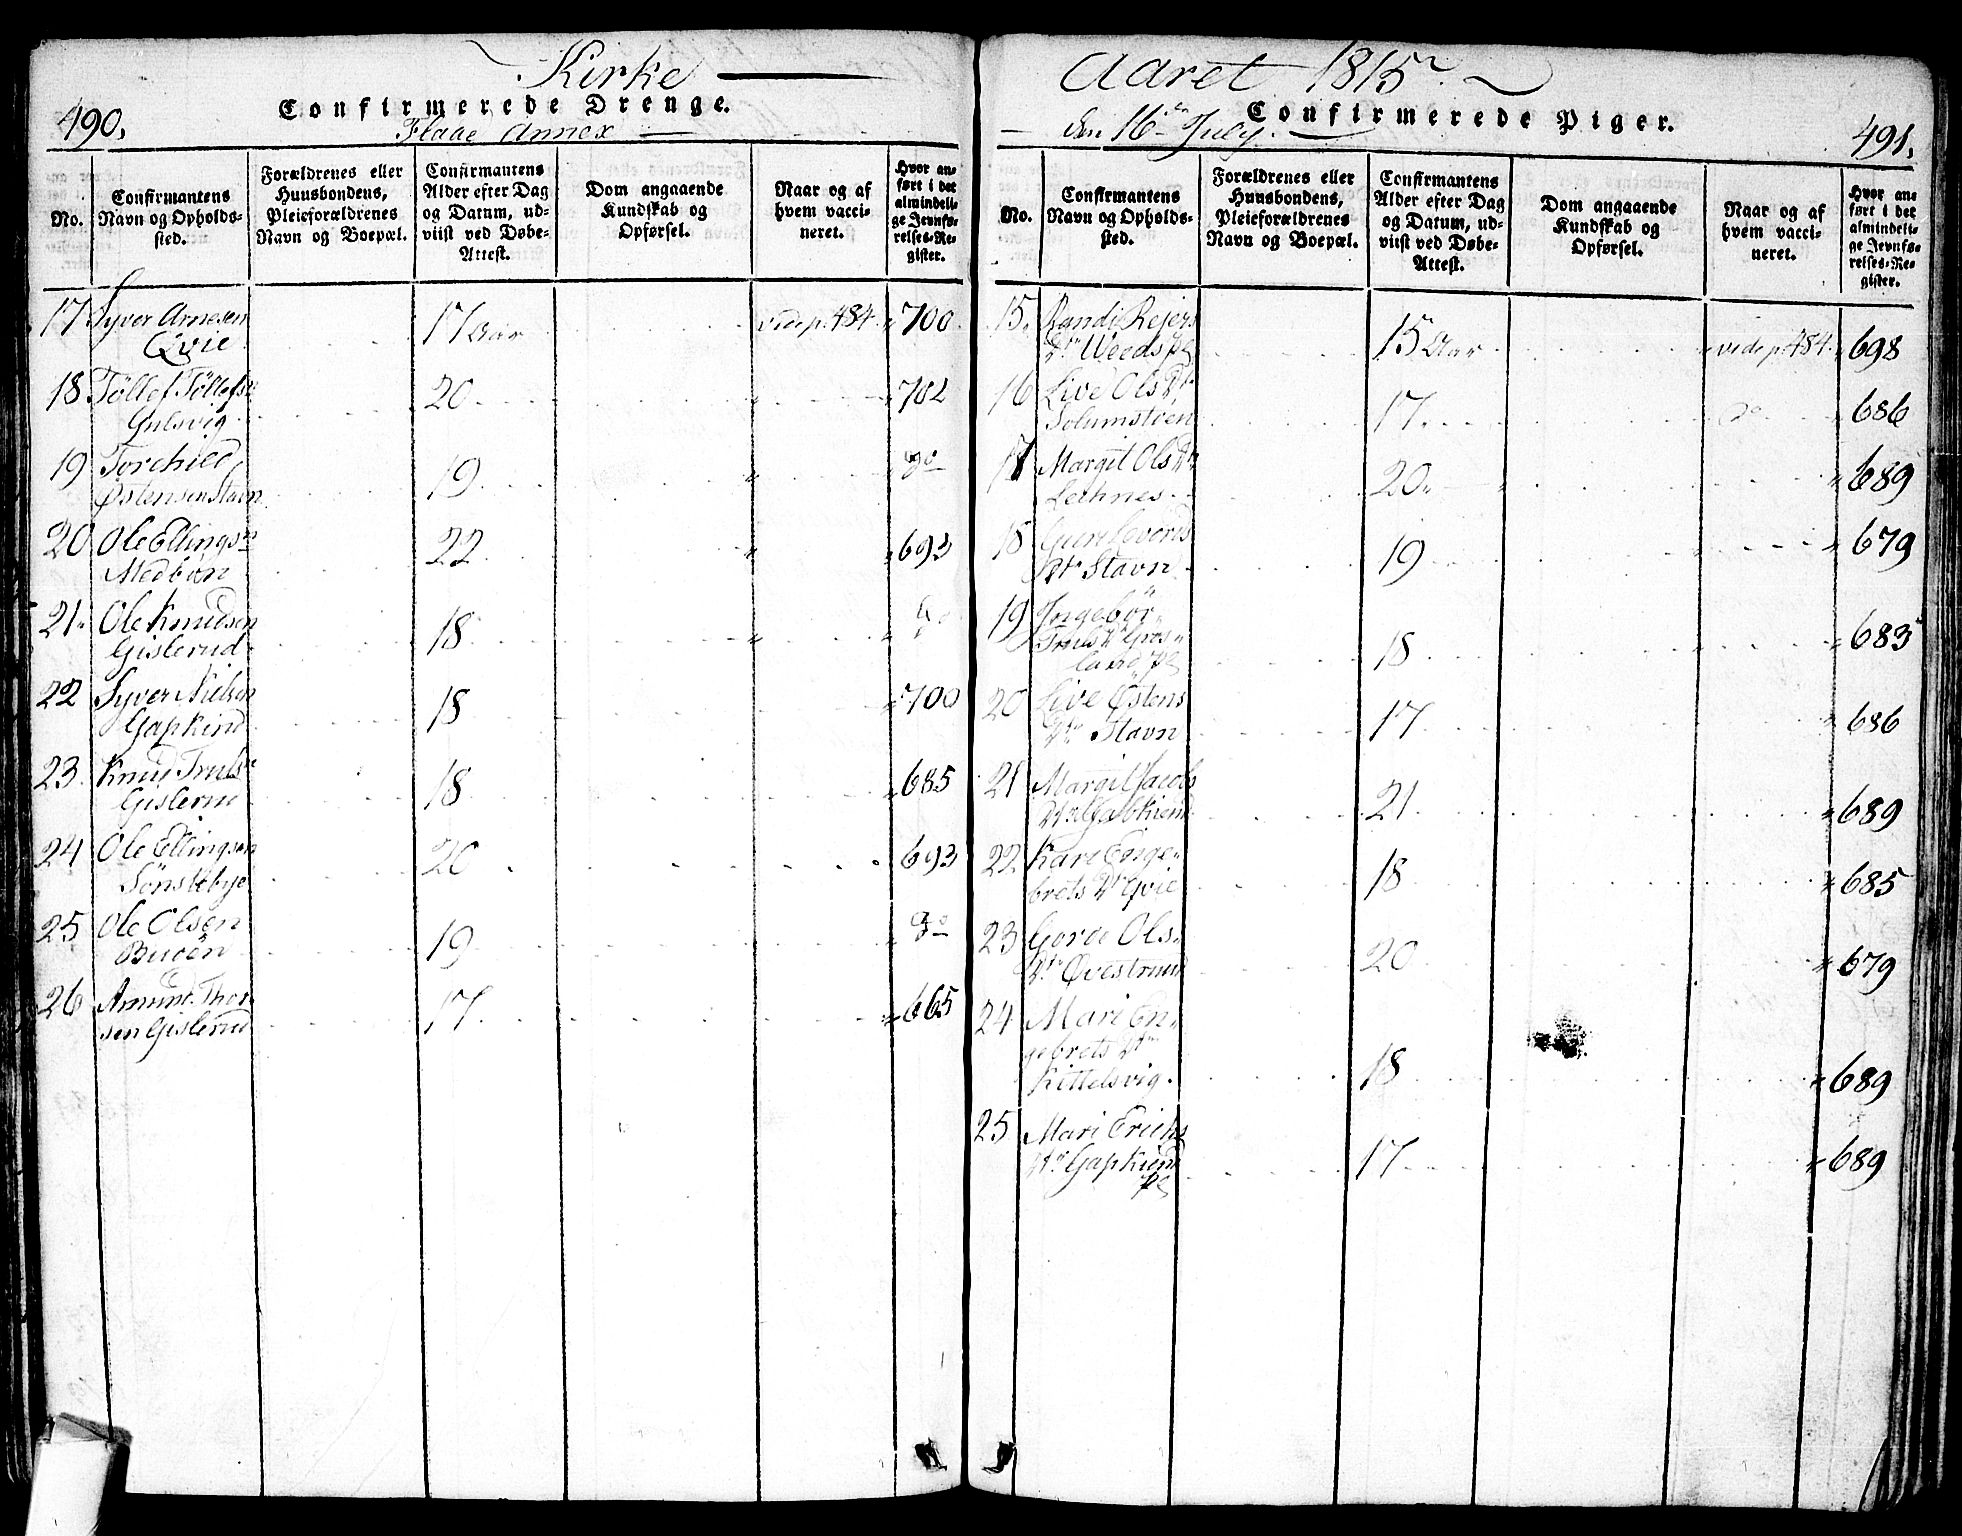 Kirke
490,
Confirmerede Drenge.
Flaae Annex
No.
Confirmantens Navn og Opholds-sted.
Forældrenes eller Huusbondens, Pleieforældrenes Navn og Boepæl.
Confirmantens Alder efter Dag og Datum, ud-viist ved Døbe-Attest.
Dom angaaende Kundskab og Opførsel.
Naar og af hvem vacci-neret.
Hvor an-ført i det almindeli-ge Jevnfø-relses-Re-gister.
17 Syver Arnesen 17 Aar vide p. 484. 700.
Qvie
18 Töllef Töllefs: 20 702
Gulsvig
19 Torchild 19 do
Østensen Stavn
20 Ole Ellings: 22 693
Medbøn
21. Ole Knudsen 18 do
Gislerud
22 Syver Nielsen 18 700
Gapkind
23. Knud Truls: 18 685
Gislerud
24 Ole Ellingsen 20 693
Sönstebye
25 Ole Olsen 19 do
Buöen
26 Amund Thor 17 665
sen Gislerud
Aaret 1815
den 16de July.
Confirmerede Piger.
491,
No.
Confirmantens Navn og Opholds-sted.
Forældrenes eller Huusbondens, Pleieforældrenes Navn og Boepæl.
Confirmantens Alder efter Dag og Datum, ud-viist ved Døbe-Attest.
Dom angaaende Kundskab og Opførsel.
Naar og af hvem vacci-neret.
Hvor an-ført i det almindeli-ge Jevnfø-relses-Re-gister.
15. Randi Rejers
Dr. Weeds pl 15 Aar vide p. 484. 698
16 Live Ols Dr.
Solumstøen 17. do 686
17 Margit Ols Dr.
20. 689
18 Guri
Dr. Stavn 19 679
19 Ingebör
Truls Dr.
pl 18 683
20 Live Østens
Dr. Stavn 17 686
21 Margit Jacobs
Dr. Gabkiend 21 689
22 Kari Enge
brets Dr. Qvie 18 685
23 Ols
Dr. Øvestrud 20 679
24 Mari En
gebrets Dr.
Kittelsvig. 18 689
25 Mari Erichs
Dr. Gapkiend 17 689
pl